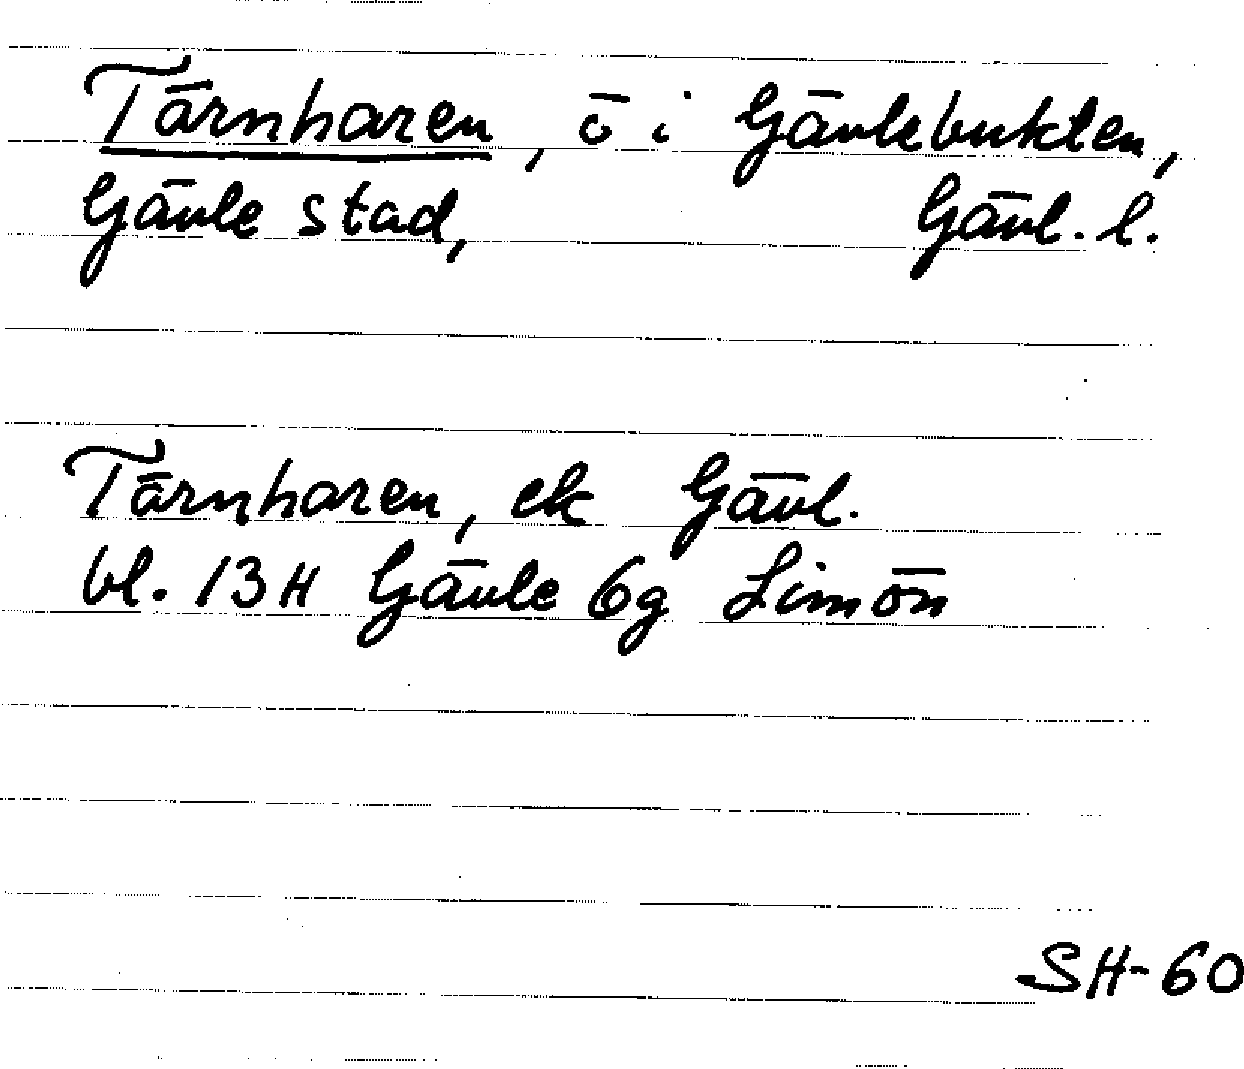 Tärnharen, ö i Gävlebukten,
Gävle stad, Gävl. l.
Tärnharen, ek Gävl.
bl. 13H Gävle 6g Limön
SH-60